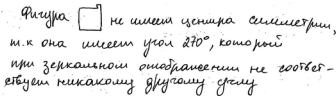 Фигура не имеет центра симметрии,
т.к она имеет угол 270°, который
при зеркальном отображении не соответ-
ствует никакому другому углу